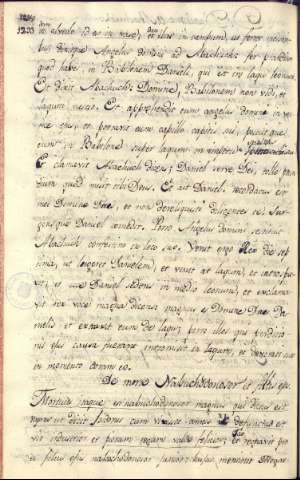 1204
1203
in alveolo id est in vase, et ibat in campum, ut ferret messo-
ribus dixitque Angelus domini ad Abachuch fer prandium
quod habes in Babilonem Danieli, qui est in lacu leonum.
Et dixit Abachuch Domine, Babilonem non vidi, et
lacum nescio. Et apprehendit eum angelus domini in ver-
tice eius, et portavit eum capillo capitis sui, posuitque
eum in Babilone super lacum in
Et clamavit Abachuch dicens; Daniel serve Dei, tolle pran-
dium quod misit tibi Deus. Et ait Daniel recordatus es
mei Domine Deus, et non dereliquisti diligentes te. Sur-
gensque Daniel comedit. Porro Angelus domini restituit
Abachuch confestim in loco suo. Venit ergo Rex die sep-
tima, ut lugeret Danielem; et venit ad lacum, et introspe-
xit, et ecce Daniel sedens in medio leonum, et exclama-
vit rex voce magna dicens magnus es Domine Deus Da-
nielis et extraxit eum de lacu, porro illos qui perditio-
nis eius causa fuerant intromisit in lacum, et devorati sunt
in momento coram eo.
De morte Nabuchodonosor et filiis eius.
Mortuus itaque est nabuchodonosor magnus qui
et dixit annis defunctus est
vir industrius et
filius eius nabuchodonosor